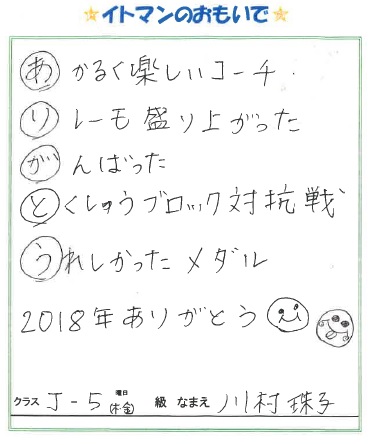 ★イトマンのおもいで★
あかるく楽しいコーチ
りレーモ盛り上がった
がんばった
とくしゅうブロック対抗戦
うれしかったメダル
2018年ありがとう
クラス J-5 曜日 木金 級 なまえ 川村 珠子